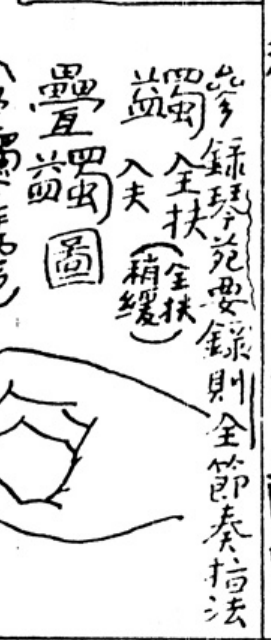 參錄琴苑要錄則全節奏指法
蠲全扶入夫（全扶稍緩）
疊蠲圖